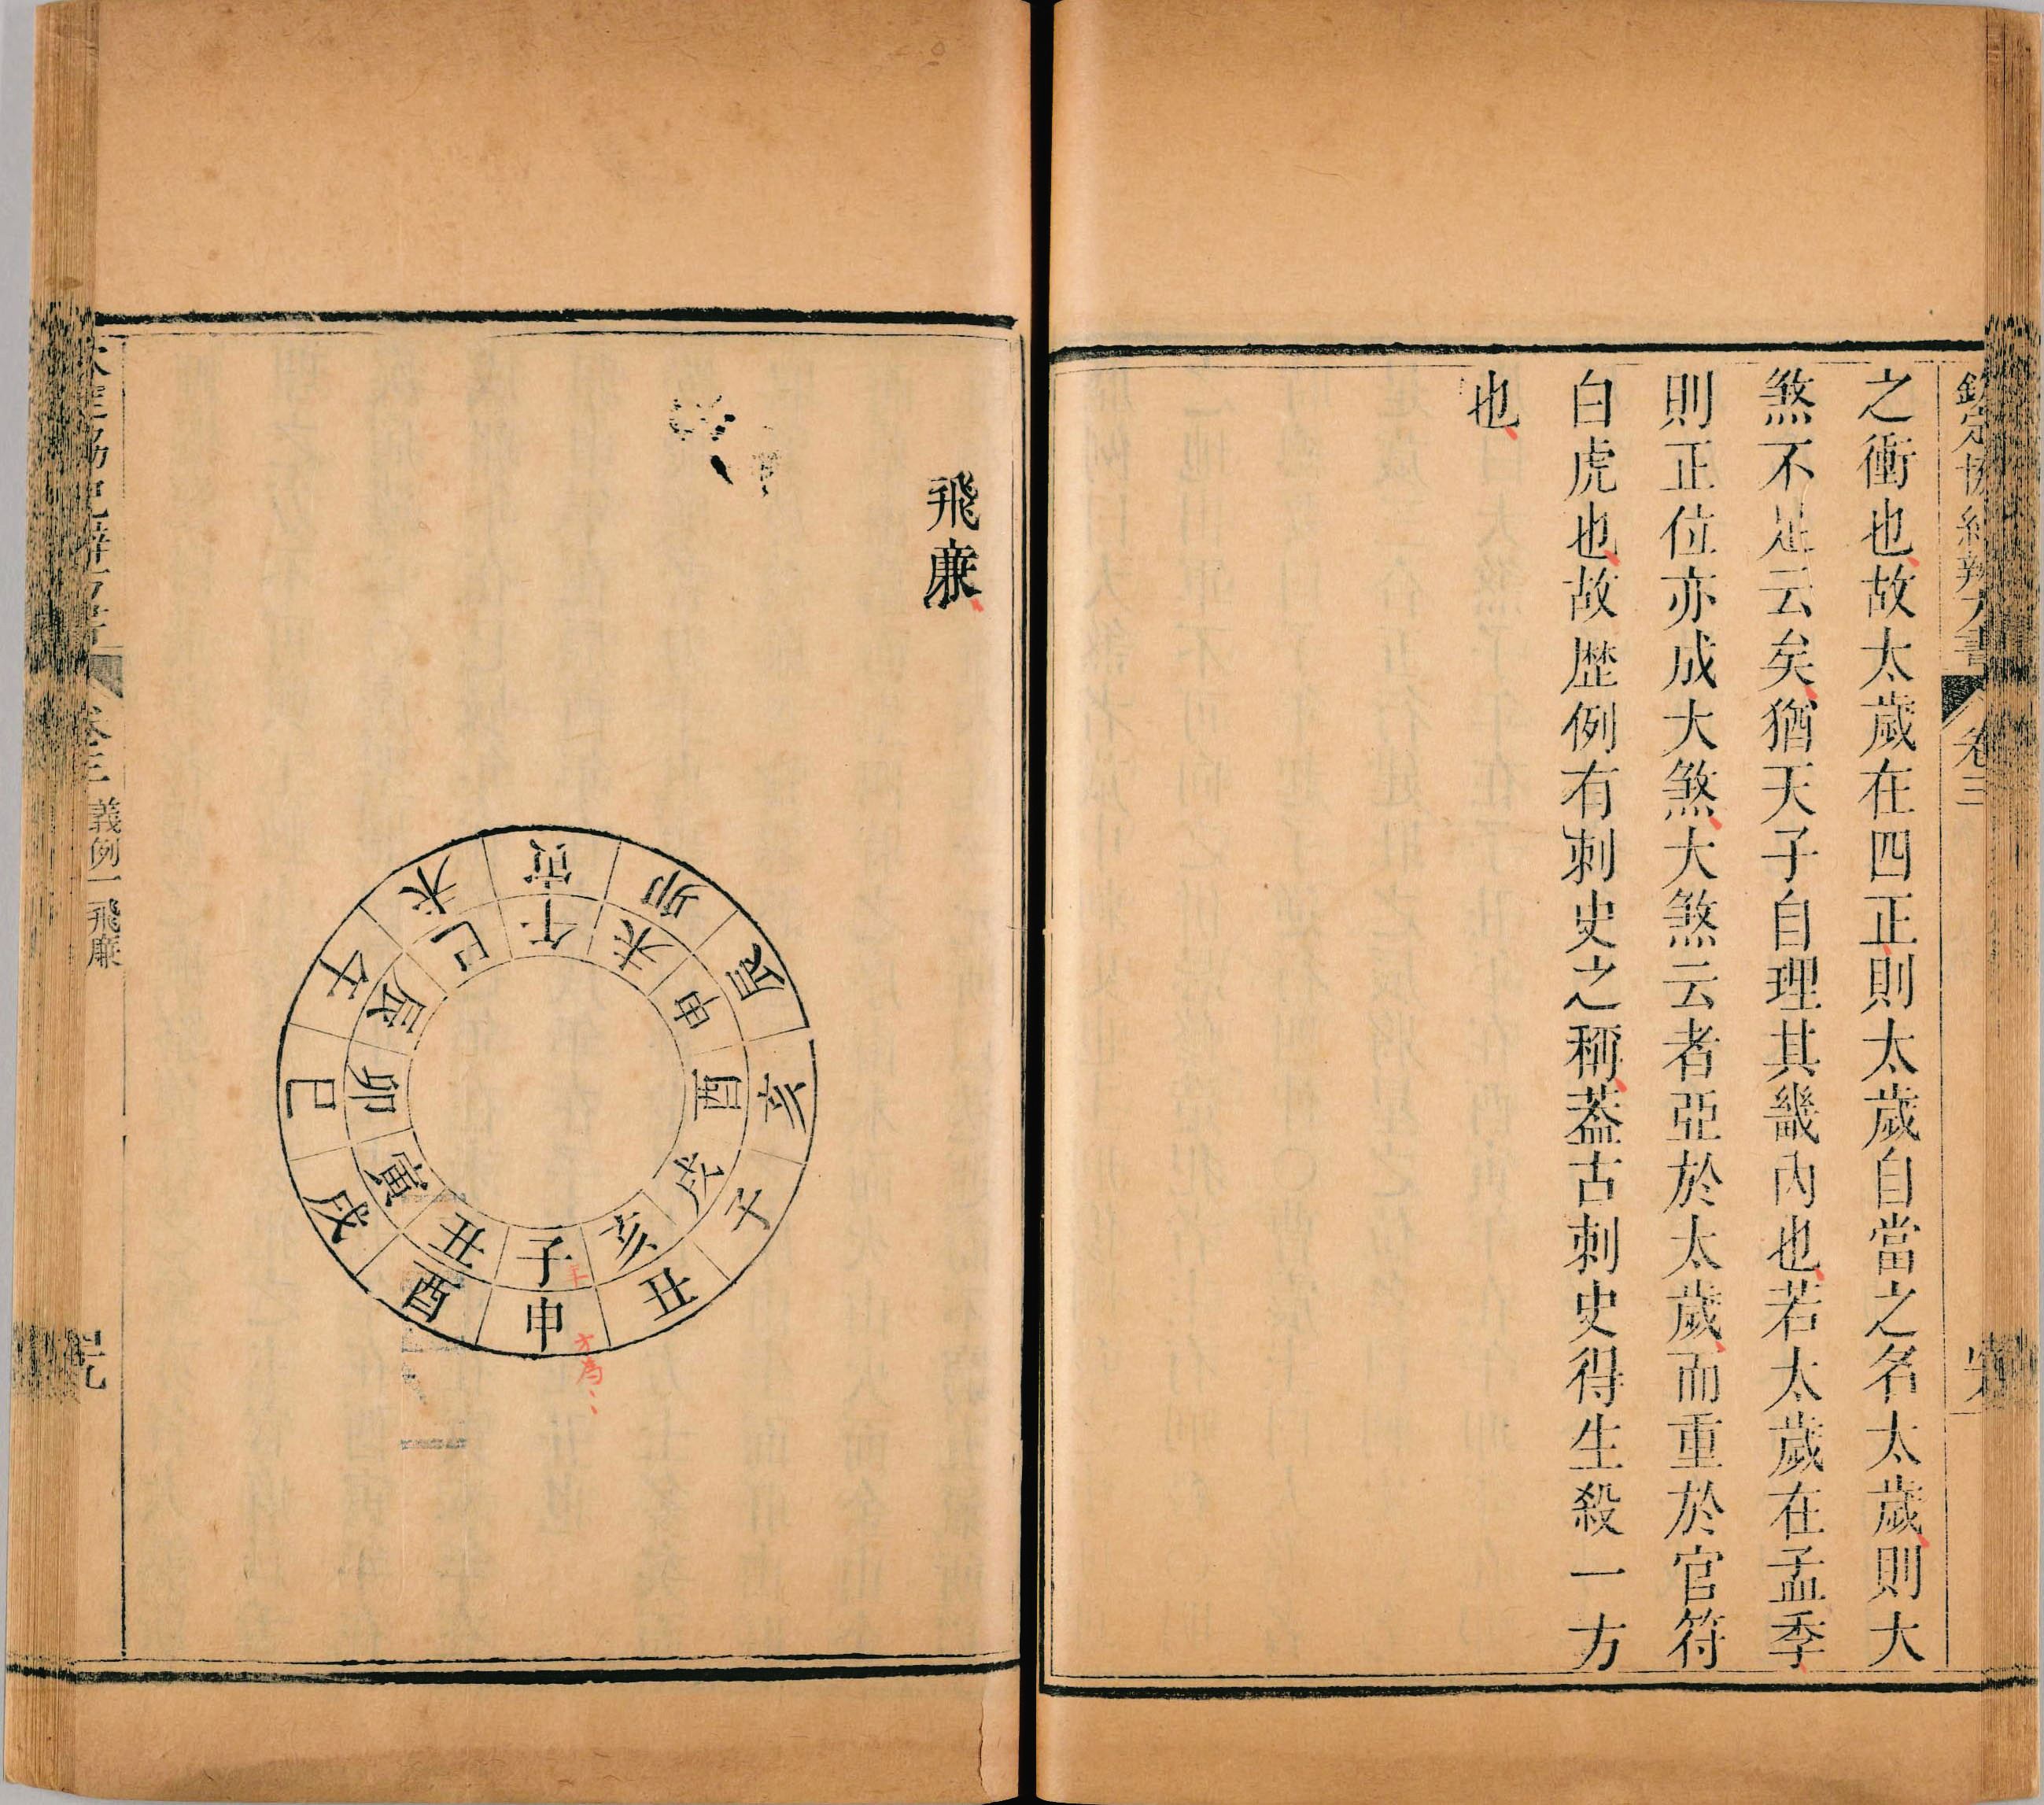 欽定協紀辨方書 卷三
之衝也、故太歲在四正、則太歲自當之名太歲、則大
煞不足云矣、猶天子自理其畿內也、若太歲在孟季、
則正位亦成大煞、大煞云者亞於太歲、而重於官符
白虎也、故歴例有刺史之稱、葢古刺史得生殺一方
也、
飛廉、
寅
卯
辰
亥
子
丑
申
酉
戌
巳
午
未
午
未
申
酉
戌
亥
子
丑
寅
卯
辰
巳
正
方為、、
卷三 義例一 飛廉